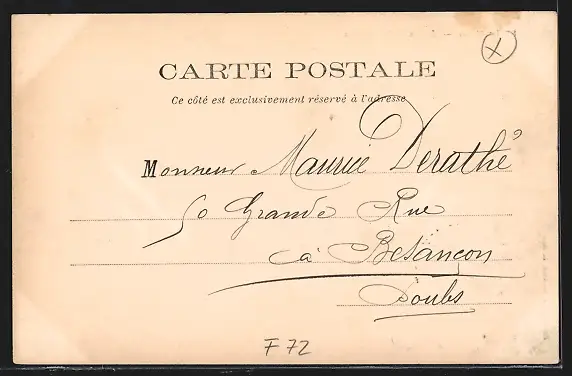 X
CARTE POSTALE
Ce côté est exclusivement réservé à l'adresse
Monsieur Maurice Derathé
50 Grande Rue
à Besançon
Doubs
F 72